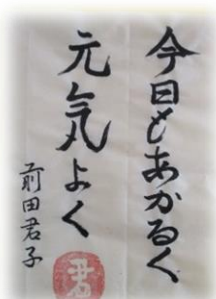 今日もあかるく
元気よく
前田君子
君